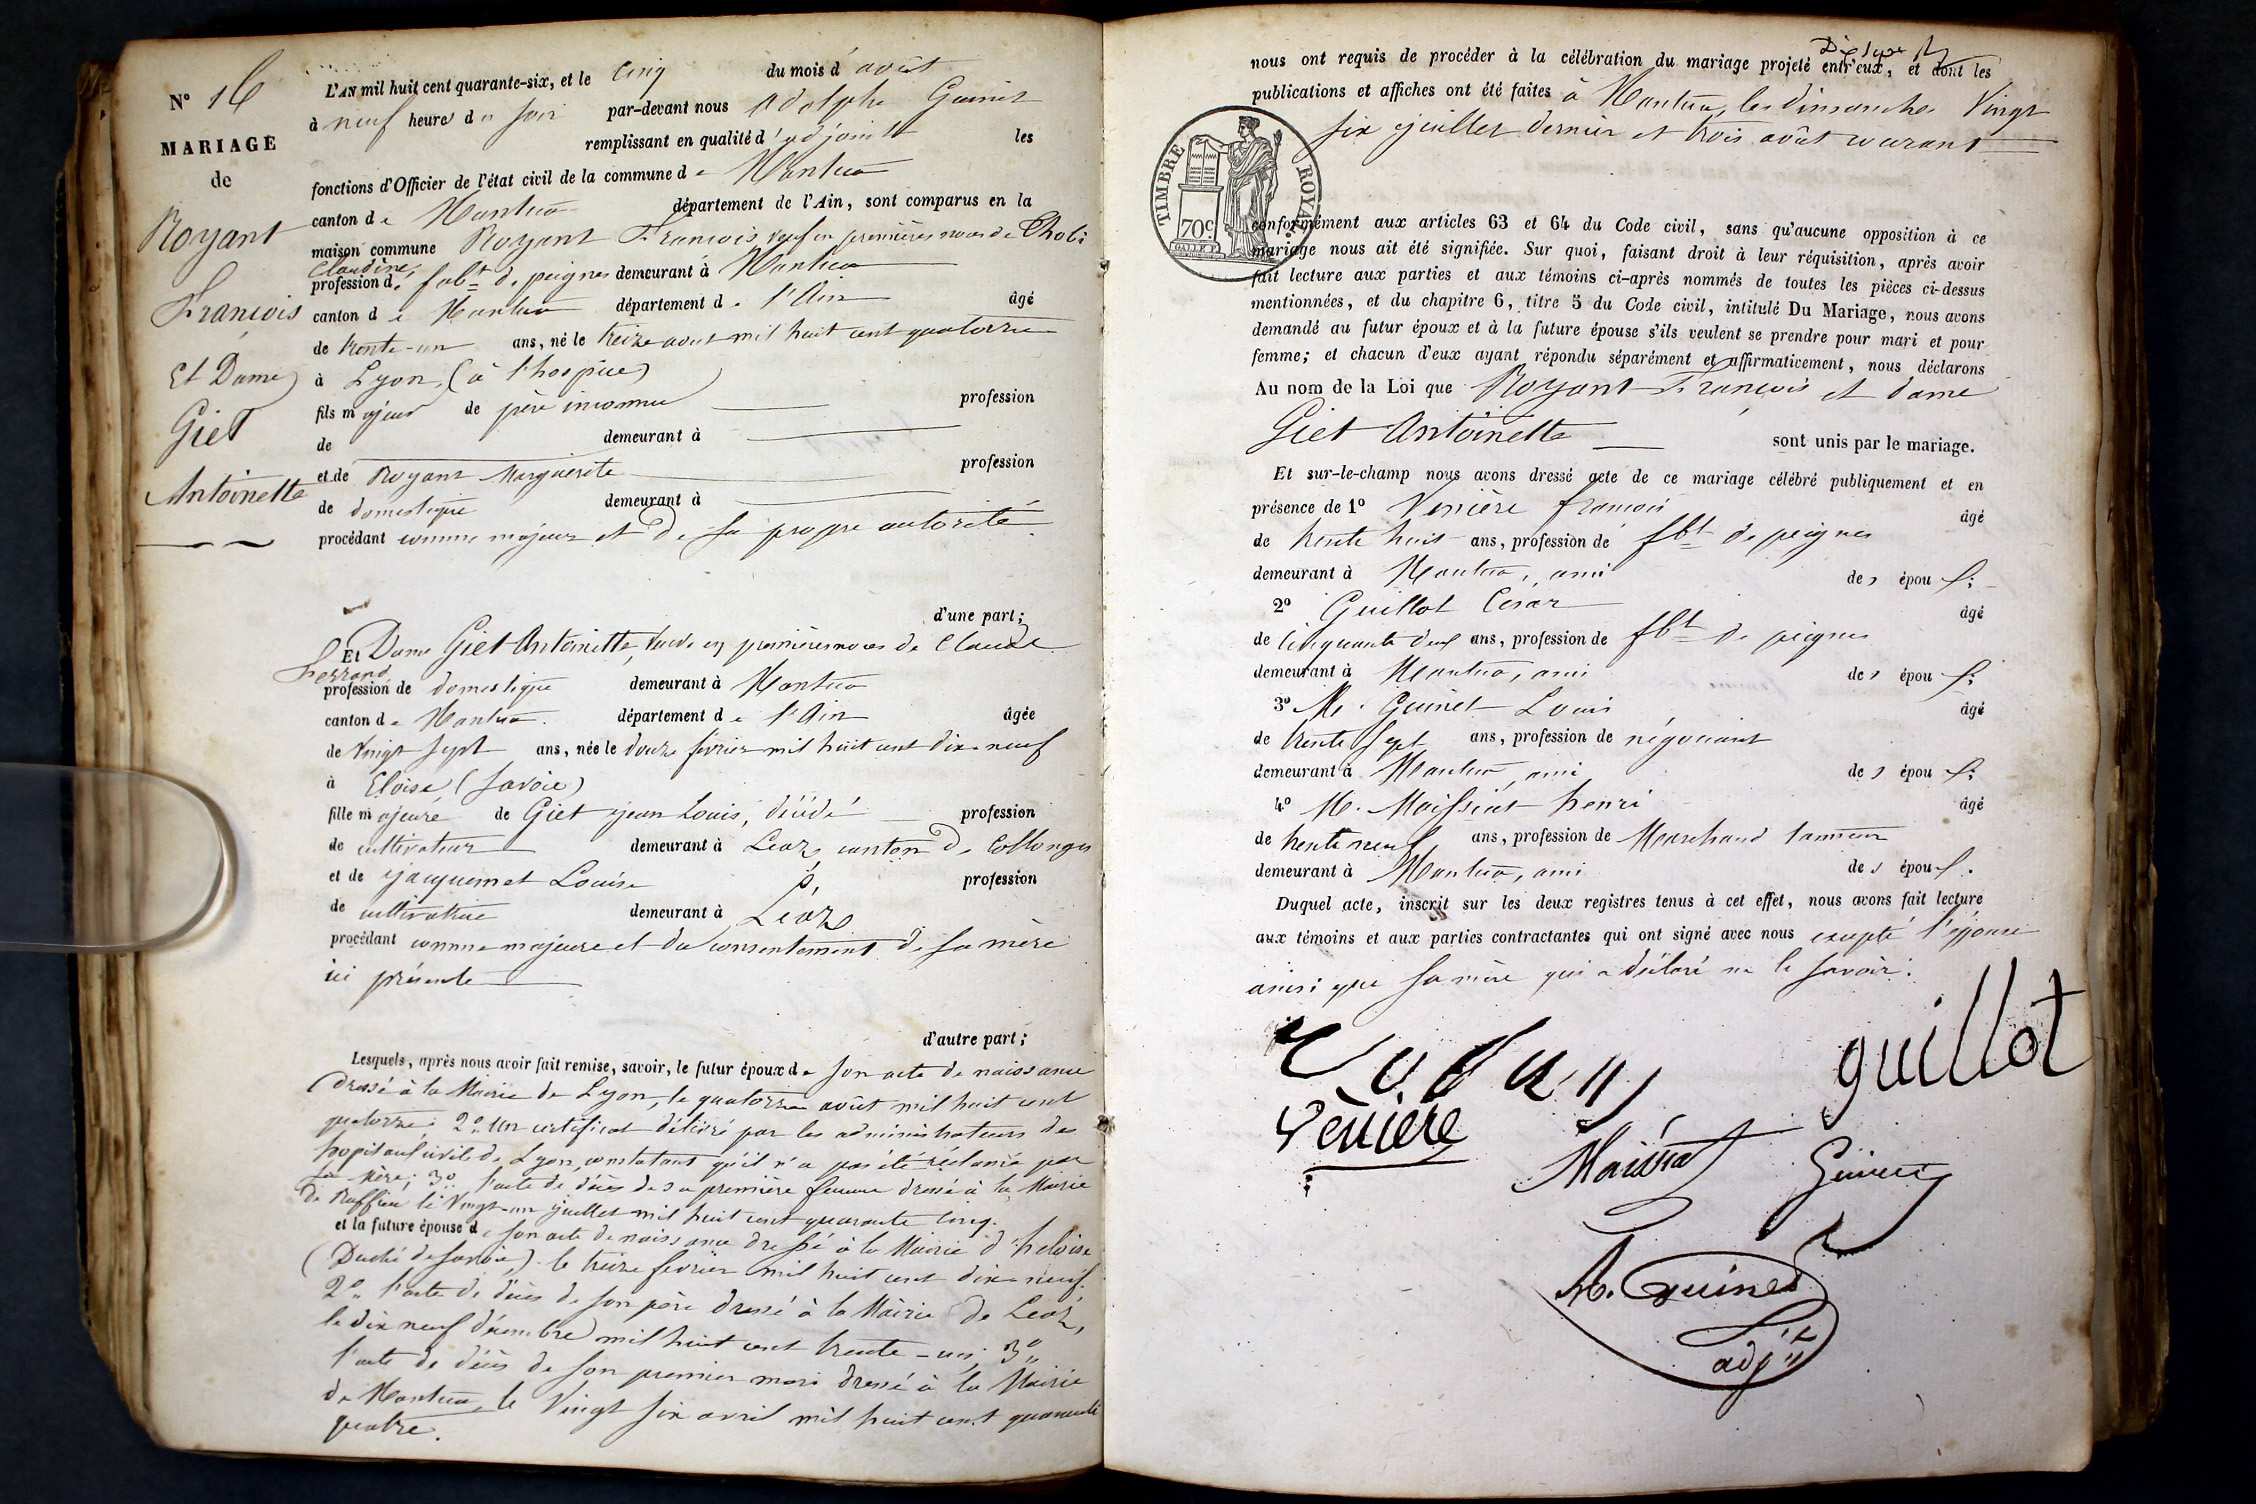 N° 16
MARIAGE
de
Royant
François
Et Dame
Giet
Antoinette
L'AN mil huit cent quarante-six, et le cinq du mois d'août
à neuf heures du soir par-devant nous Adolphe Guinet
remplissant en qualité d'adjoint les
fonctions d'Officier de l'état civil de la commune de Nantua
canton de Nantua département de l'Ain, sont comparus en la
maison commune Royant François, veuf en premières noces de
Claudine,
profession de fabt de peignes demeurant à Nantua
canton de Nantua département de l'Ain âgé
de trente-un ans, né le treize août mil huit cent quatorze
à Lyon, (à l'hospice)
fils majeur de père inconnu profession
de demeurant à
et de Royant Marguerite profession
de domestique demeurant à
procédant comme majeur et de sa propre autorité
d'une part;
Et Dame Giet Antoinette, veuve en premières noces de Claude
profession de domestique demeurant à Nantua
canton de Nantua département de l'Ain âgée
de vingt sept ans, née le douze février mil huit cent dix-neuf
à Eloise (Savoie)
fille majeure de Giet jean Louis, décédé profession
de cultivateur demeurant à Leaz canton de Collonges
et de jacquemet Louise profession
de cultivatrice demeurant à Leaz
procédant comme majeure et du consentement de sa mère
ici présente
d'autre part;
Lesquels, après nous avoir fait remise, savoir, le futur époux de son acte de naissance
dressé à la Mairie de Lyon, le quatorze août mil huit cent
quatorze; 2° un certificat délivré par les administrateurs des
hopitaux civils de Lyon, constatant qu'il n'a pas été réclamé par
sa mère; 3° l'acte de décès de sa première femme dressé à la Mairie
de Ruffieu le vingt-un juillet mil huit cent quarante cinq.
et la future épouse de son acte de naissance dressé à la Mairie d'heloise
(Duché de Savoie,) le treize février mil huit cent dix-neuf.
2° l'acte de décès de son père dressé à la Mairie de Leaz,
le dix neuf décembre mil huit cent trente-un; 3°
l'acte de décès de son premier mari dressé à la Mairie
de Nantua, le vingt six avril mil huit cent quarante
quatre.
nous ont requis de procéder à la célébration du mariage projeté entr'eux, et dont les
publications et affiches ont été faites à Nantua, les dimanches vingt
six juillet dernier et trois août courant
TIMBRE ROYAL
70c
conformément aux articles 63 et 64 du Code civil, sans qu'aucune opposition à ce
mariage nous ait été signifiée. Sur quoi, faisant droit à leur réquisition, après avoir
fait lecture aux parties et aux témoins ci-après nommés de toutes les pièces ci-dessus
mentionnées, et du chapitre 6, titre 5 du Code civil, intitulé Du Mariage, nous avons
demandé au futur époux et à la future épouse s'ils veulent se prendre pour mari et pour
femme; et chacun d'eux ayant répondu séparément et affirmativement, nous déclarons
Au nom de la Loi que Royant François et dame
Giet Antoinette sont unis par le mariage.
Et sur-le-champ nous avons dressé acte de ce mariage célébré publiquement et en
présence de 1° Verrière françois âgé
de trente huit ans, profession de fbt de peignes
demeurant à Nantua, ami des époux;
2° Guillot Cesar âgé
de cinquante deux ans, profession de fbt de peignes
demeurant à Nantua, ami des époux;
3° M. Guinet Louis âgé
de trente sept ans, profession de négociant
demeurant à Nantua, ami des époux;
4° M. Moissiat henri âgé
de trente neuf ans, profession de Marchand tanneur
demeurant à Nantua, ami des époux.
Duquel acte, inscrit sur les deux registres tenus à cet effet, nous avons fait lecture
aux témoins et aux parties contractantes qui ont signé avec nous excepté l'épouse
ainsi que sa mère qui a déclaré ne le savoir.
guillot
Verriere
Moissiat Guinet
A. Guinet
adjt